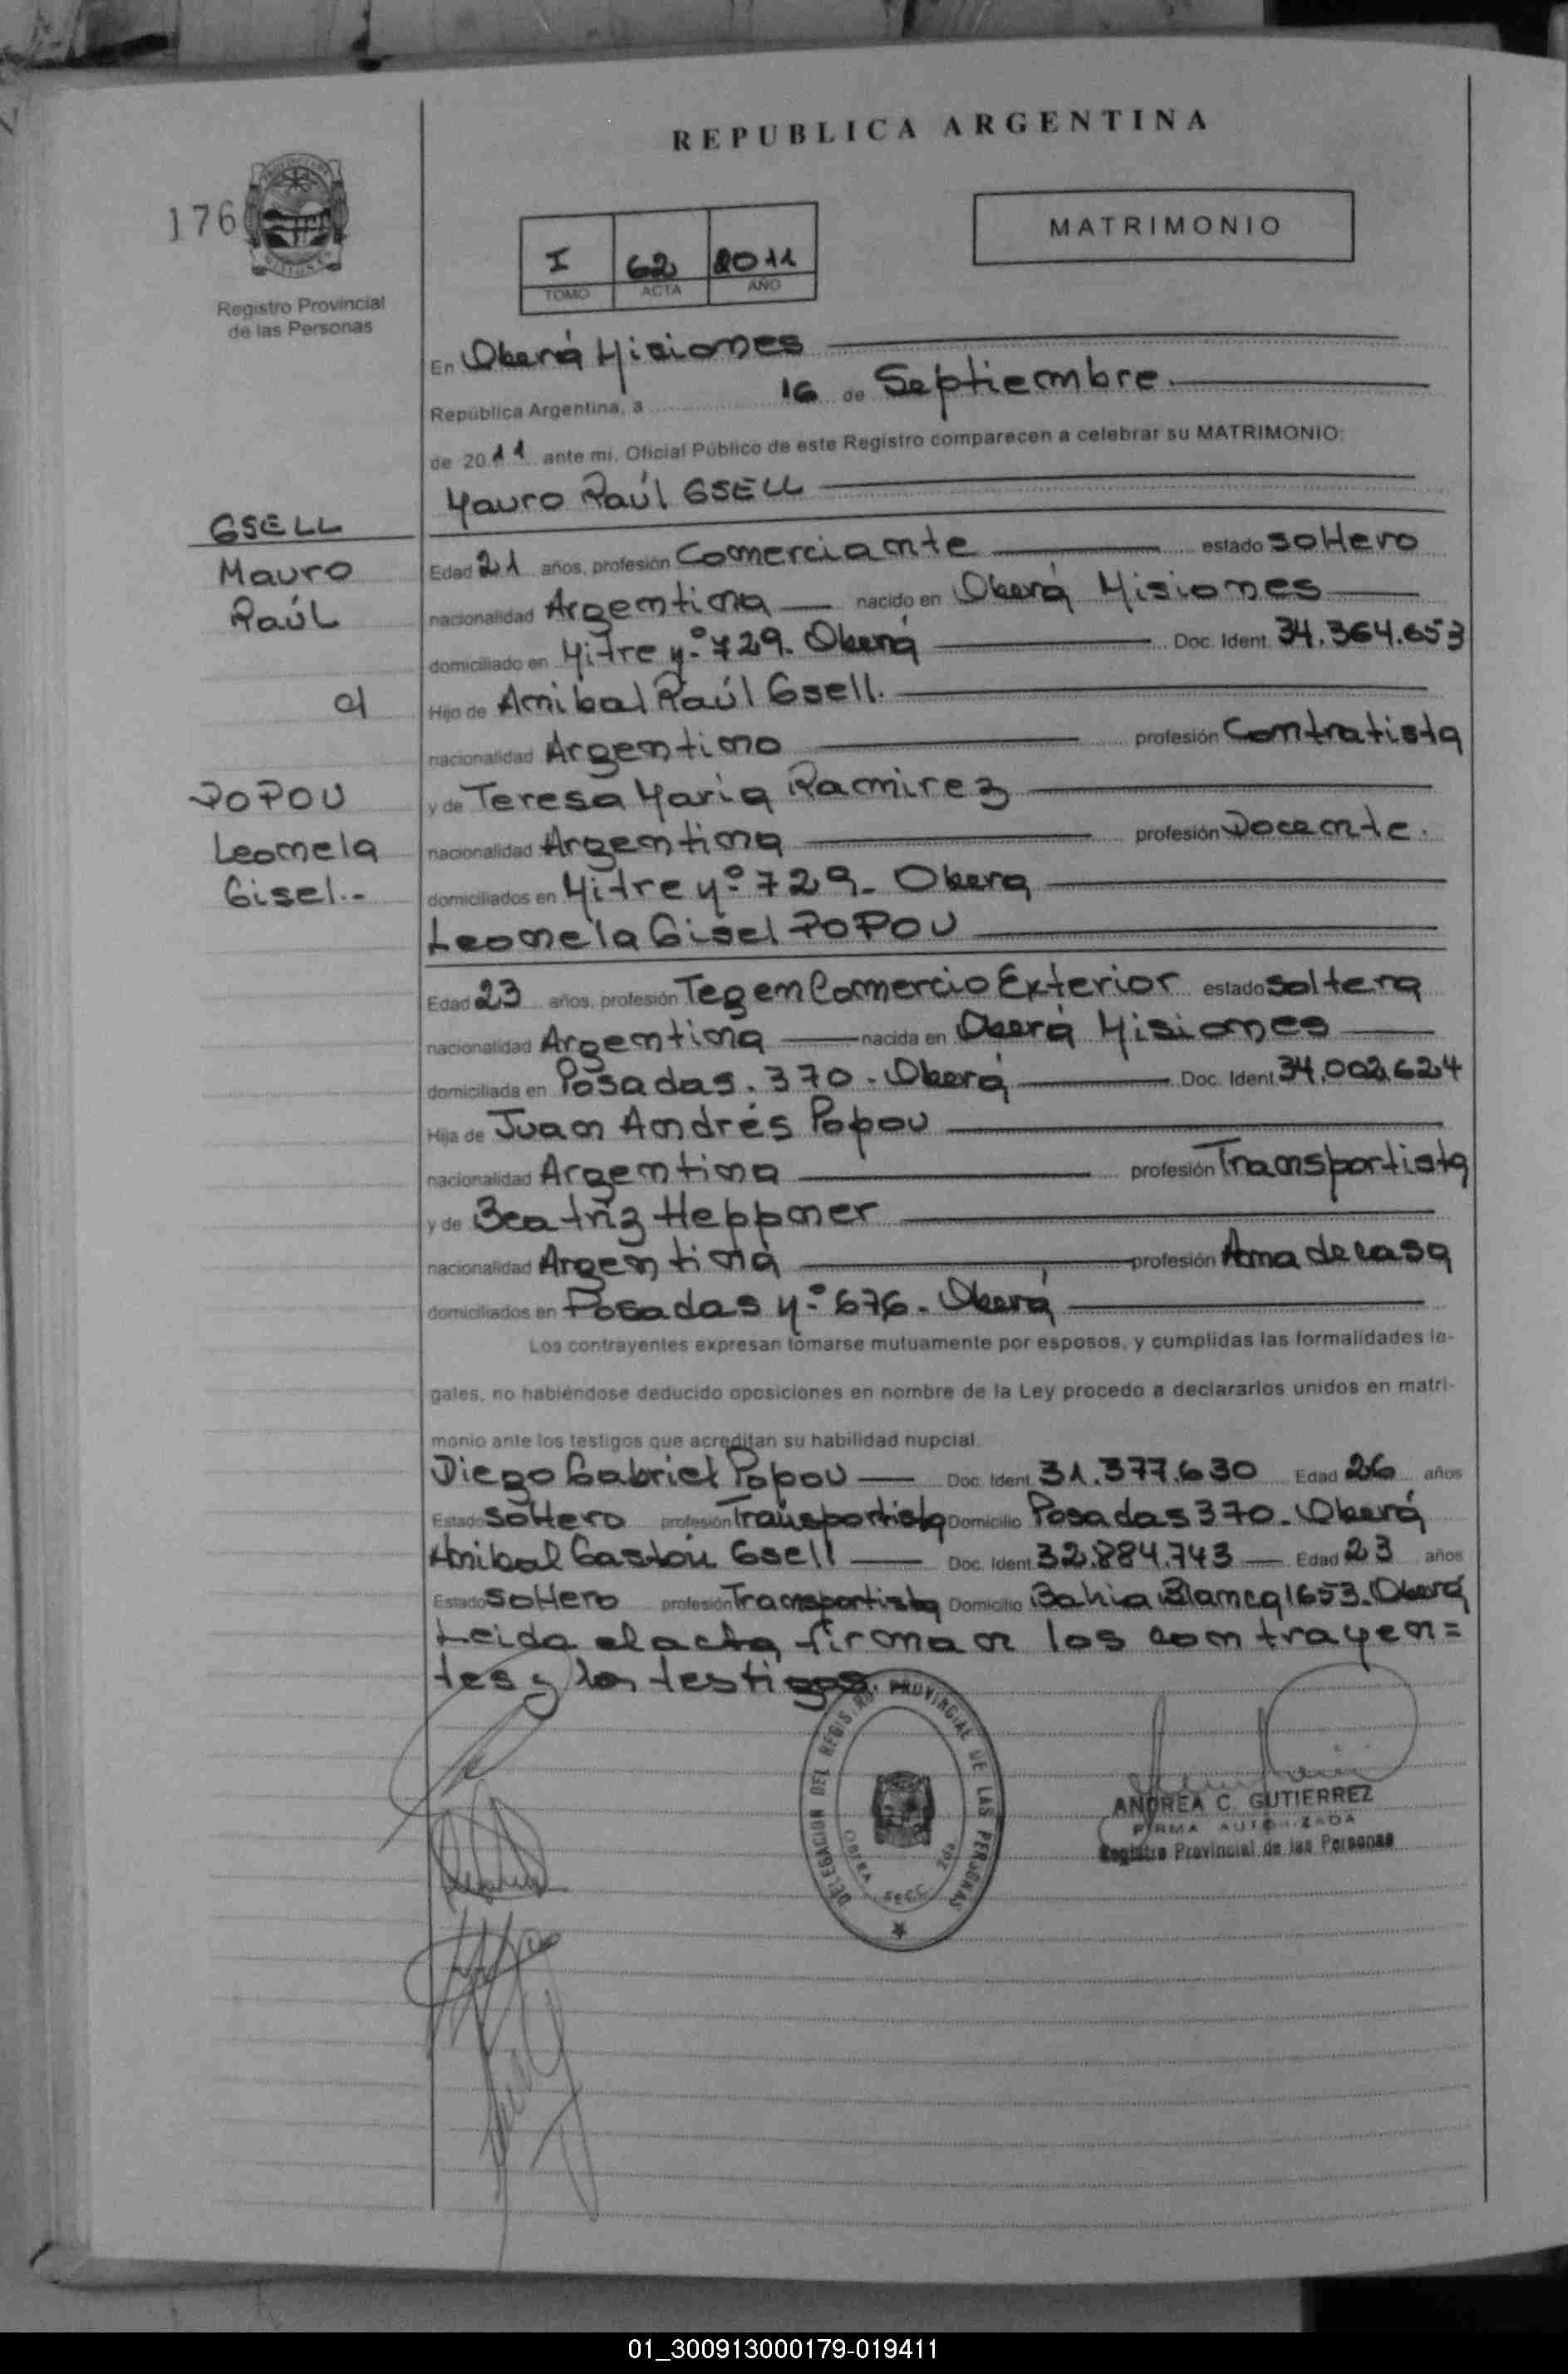 REPUBLICA ARGENTINA
176
MATRIMONIO
I 62 2011
TOMO ACTA AÑO
Registro Provincial
de las Personas
En Oberá Misiones
República Argentina, a 16 de Septiembre.
de 2011 ante mi, Oficial Público de este Registro comparecen a celebrar su MATRIMONIO:
Mauro Raúl GSELL
GSELL
Mauro
Raúl
c/
POPOU
Leonela
Gisel.-
Edad 21 años, profesión Comerciante estado soltero
nacionalidad Argentina nacido en Oberá Misiones
domiciliado en Mitre Nº 729. Oberá Doc. Ident. 34.364.653
Hijo de Anibal Raúl Gsell.
nacionalidad Argentino profesión Contratista
y de Teresa Maria Ramirez
nacionalidad Argentina profesión Docente.
domiciliados en Mitre Nº 729- Obera
Leonela Gisel POPOU
Edad 23 años, profesión Teg en Comercio Exterior estado soltera
nacionalidad Argentina nacida en Oberá Misiones
domiciliada en Posadas. 370. Oberá Doc. Ident. 34.002.624
Hija de Juan Andrés Popou
nacionalidad Argentina profesión Transportista
y de Beatriz Heppner
nacionalidad Argentina profesión Ama de casa
domiciliados en Posadas Nº 676. Oberá
Los contrayentes expresan tomarse mutuamente por esposos, y cumplidas las formalidades le-
gales, no habiéndose deducido oposiciones en nombre de la Ley procedo a declararlos unidos en matri-
monio ante los testigos que acreditan su habilidad nupcial.
Diego Gabriel Popou Doc. Ident. 31.377.630 Edad 26 años
Estado Soltero profesión Transportista Domicilio Posadas 370. Oberá
Anibal Gastón Gsell Doc. Ident. 32.884.743 Edad 23 años
Estado Soltero profesión Transportista Domicilio Bahia Blanca 1653. Oberá
Leida el acta, firman los contrayen=
tes y los testigos.
DELEGACION DEL REGISTRO PROVINCIAL DE LAS PERSONAS
OBERA SECC. 2da
ANDREA C. GUTIERREZ
FIRMA AUTORIZADA
Registro Provincial de las Personas
01_300913000179-019411